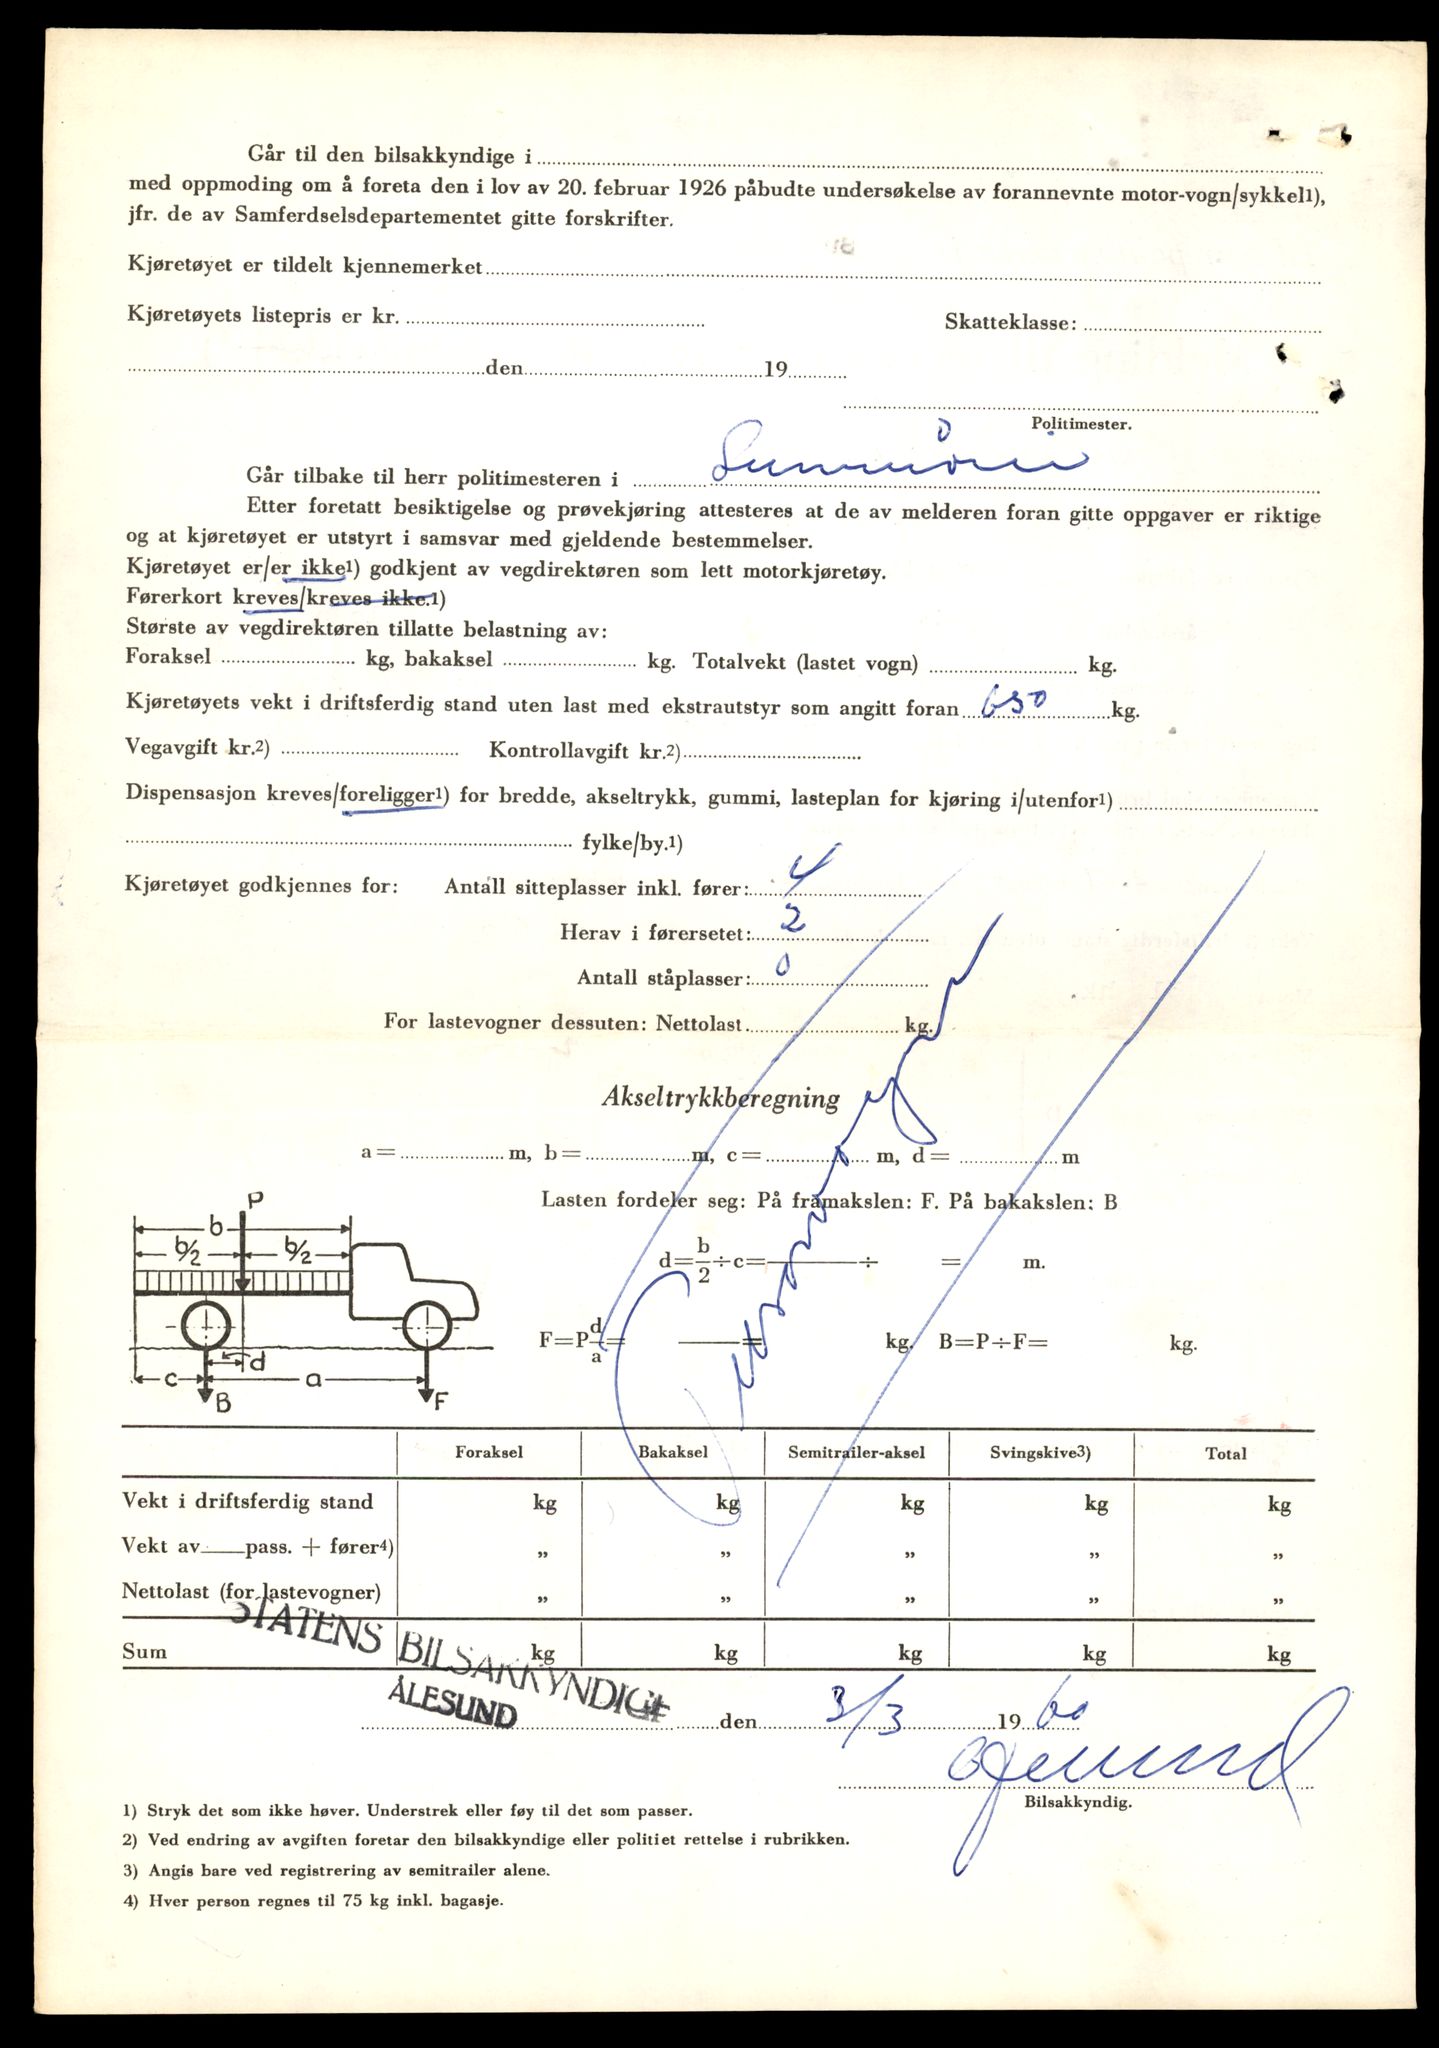 Går til den bilsakkyndige i
med oppmoding om å foreta den i lov av 20. februar 1926 påbudte undersøkelse av forannevnte motor-vogn/sykkel1),
jfr. de av Samferdselsdepartementet gitte forskrifter.
Kjøretøyet er tildelt kjennemerket
Kjøretøyets listepris er kr. Skatteklasse:
den 19
Politimester.
Går tilbake til herr politimesteren i Sunnmöre
Etter foretatt besiktigelse og prøvekjøring attesteres at de av melderen foran gitte oppgaver er riktige
og at kjøretøyet er utstyrt i samsvar med gjeldende bestemmelser.
Kjøretøyet er/er ikke1) godkjent av vegdirektøren som lett motorkjøretøy.
Førerkort kreves/kreves ikke.1)
Største av vegdirektøren tillatte belastning av:
Foraksel kg, bakaksel kg. Totalvekt (lastet vogn) kg.
Kjøretøyets vekt i driftsferdig stand uten last med ekstrautstyr som angitt foran 650 kg.
Vegavgift kr.2) Kontrollavgift kr.2)
Dispensasjon kreves/foreligger1) for bredde, akseltrykk, gummi, lasteplan for kjøring i/utenfor1)
fylke/by.1)
Kjøretøyet godkjennes for: Antall sitteplasser inkl. fører: 4
Herav i førersetet: 2
Antall ståplasser: 0
For lastevogner dessuten: Nettolast kg.
Personvogn
Akseltrykkberegning
a= m, b= m, c= m, d= m
Lasten fordeler seg: På framakslen: F. På bakakslen: B
d=b/2÷c= ÷ = m.
F=P d/a= = kg. B=P÷F= kg.
P
b
b/2 b/2
d
c a
B F
Foraksel Bakaksel Semitrailer-aksel Svingskive3) Total
Vekt i driftsferdig stand kg kg kg kg kg
Vekt av pass. + fører4) „ „ „ „ „
Nettolast (for lastevogner) „ „ „ „ „
Sum kg kg kg kg kg
STATENS BILSAKKYNDIGE
ÅLESUND
den 3/3 19 60
Bilsakkyndig.
1) Stryk det som ikke høver. Understrek eller føy til det som passer.
2) Ved endring av avgiften foretar den bilsakkyndige eller politiet rettelse i rubrikken.
3) Angis bare ved registrering av semitrailer alene.
4) Hver person regnes til 75 kg inkl. bagasje.